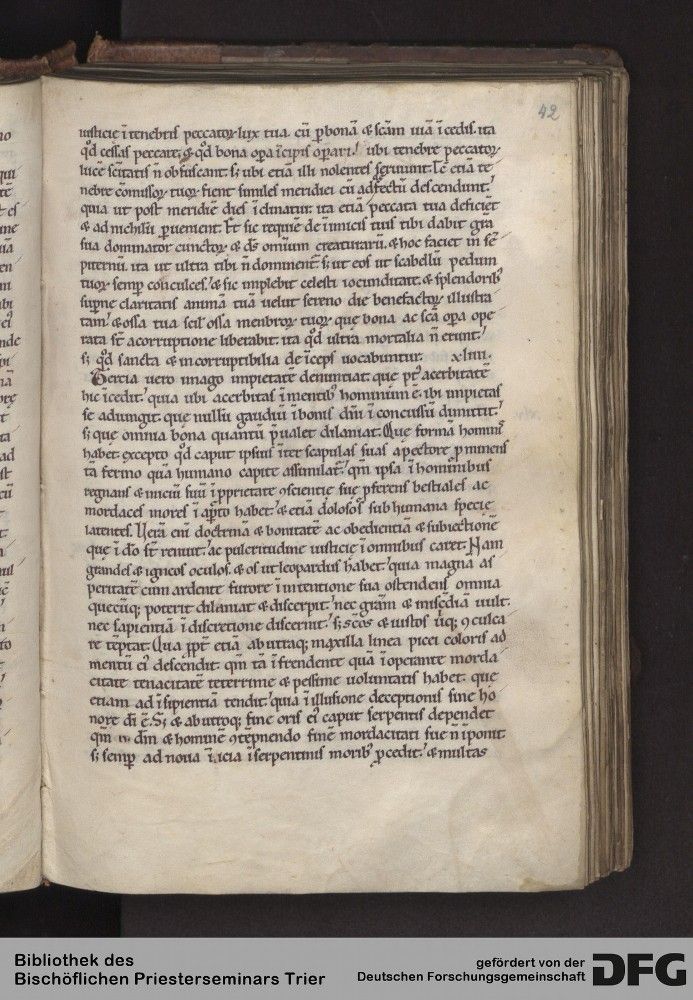 42
iusticie ĩ tenebris peccatoꝝ lux tua. cũ ꝑ bonã & sc̃am uiã ĩcedis. ita
qď cessas peccare. & qď bona oꝑa ĩcipis oꝑari. ubi tenebre peccatoꝝ
lucẽ n̄ obfuscant. sꝫ ubi etiã illi nolentes seruiunt. etiã te
nebre cõmissoꝝ tuoꝝ fient similes meridiei cũ descendunt.
quia ut post meridiẽ dies ĩclinatur. ita etiã peccata tua deficiẽt
& ad nichilũ ꝑuenient. Et sic requiẽ de ĩimicis tuis tibi dabit gr̃a
sua dominator cunctoꝝ & dš omniũm creaturarũ. & hoc faciet in sẽ
piternũ. ita ut ultra tibi n̄ dominent̃. sꝫ ut eos ut scabellũ pedum
tuoꝝ semꝑ conculces. & sic implebit celesti iocunditate. & splendorib;
suꝑne claritatis animã tuã uelut sereno die benefactoꝝ illustra
tam. & ossa tua scil̃ ossa menbroꝝ tuoꝝ que bona ac sc̃a oꝑa ope
rata st̃ a corruptione liberabit. ita qď ultra mortalia n̄ erunt.
sꝫ qď sancta & incorruptibilia deĩceps uocabuntur. xliiii.
Tercia uero imago impietatẽ denuntiat. que pt̃ acerbitatẽ
hic ĩcedit. quia ubi acerbitas ĩ mentib; hominum ẽ. ibi impietas
se adiungit. que nullũ gaudiũ ĩ bonis dñi ĩconcussũ dimittit.
sꝫ que omnia bona quantũ p̃ualet dilaniat. Que formã hominis
habet. excepto qď caput ipsius ĩter scapulas suas a pectore ꝓminens
tã ferino quã humano capite assimilat̃. qm̃ ipsa ĩ hominibus
regnans & iniciũ suũ ĩ ꝓprietate ↄscientie sue p̃ferens bestiales ac
mordaces mores ĩ aꝑto habet. & etiã dolosos sub humana specie
latentes. Verã eni doctrinã & bonitatẽ ac obedientiã & subiectionẽ
que ĩ do st̃ renuit. ac pulcritudine iusticie ĩ omnibus caret. Nam
grandes & igneos oculos. & os ut leopardus habet. quia magna as
peritatẽ cum ardente furore ĩ intentione sua ostendens omnia
quecũq; poterit dilaniat & discerpit. nec gr̃am & mise̅diã uult.
nec sapientiã ĩ discretione discernit. sꝫ sc̃os & iustos ũq; ↄculca
re tẽptat. Qua ꝓpt̃ etiã ab utraq; maxilla linea picei coloris ad
mentũ ei⁹ descendit. qm̃ tã ĩ frendente quã ĩ opciante morda
citate tenacitatẽ teterrime & pessime uoluntatis habet. que
etiam ad ĩsipientiã tendit. quia ĩ illusione deceptionis sine ho
nore di ẽ. Sꝫ & ab utroq; fine oris ei⁹ caput serpentis dependet
qm̃ dm̃ & hominẽ ↄtẽpnendo finẽ mordacitati sue n̄ ĩponit
sꝫ semꝑ ad noua ĩicia ĩ serpentinis morib; ꝓcedit. & multas
Bibliothek des
Bischöflichen Priesterseminars Trier
gefördert von der
Deutschen Forschungsgemeinschaft
DFG